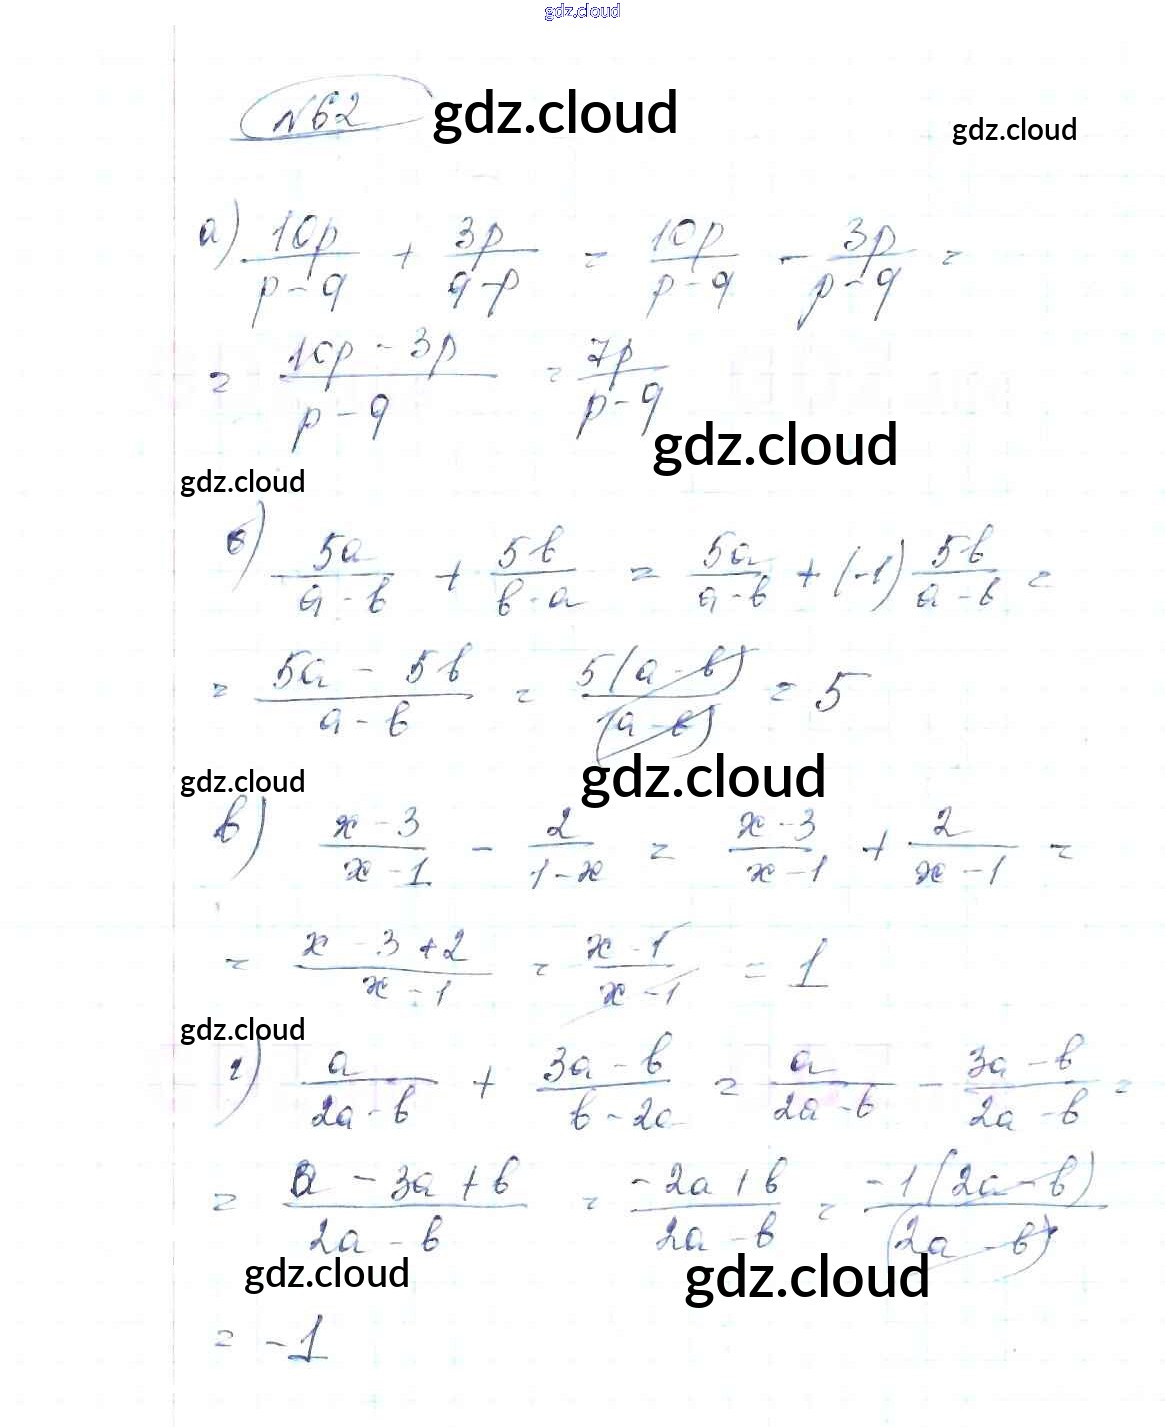 gdz.cloud
№62 gdz.cloud
gdz.cloud
а) 10p/(p-q) + 3p/(q-p) = 10p/(p-q) - 3p/(p-q) =
= (10p - 3p)/(p-q) = 7p/(p-q)
gdz.cloud
gdz.cloud
б) 5a/(a-b) + 5b/(b-a) = 5a/(a-b) + (-1) 5b/(a-b) =
= (5a - 5b)/(a-b) = 5(a-b)/(a-b) = 5
gdz.cloud
gdz.cloud
в) (x-3)/(x-1) - 2/(1-x) = (x-3)/(x-1) + 2/(x-1) =
= (x-3+2)/(x-1) = (x-1)/(x-1) = 1
gdz.cloud
г) a/(2a-b) + (3a-b)/(b-2a) = a/(2a-b) - (3a-b)/(2a-b) =
= (a-3a+b)/(2a-b) = (-2a+b)/(2a-b) = -1(2a-b)/(2a-b)
gdz.cloud gdz.cloud
= -1